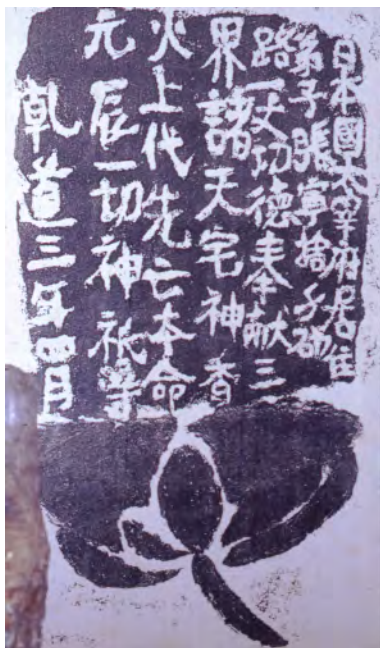 日本國太宰府居住
弟子張寧捨身砌
路一丈功德奉献三
界諸天宅神香
火上代先亡本命
元辰一切神祇等
乾道三年四月